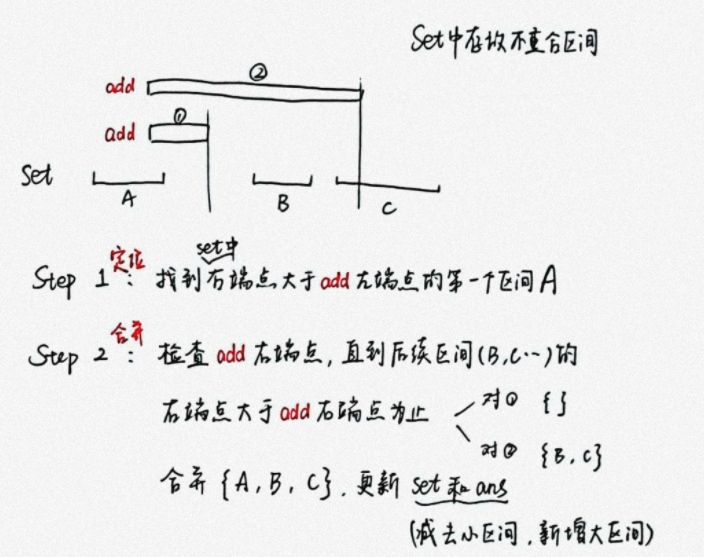 Set中存放不重合区间
②
add
①
add
Set
A
B
C
定位
set中
Step 1: 找到右端点大于add左端点的第一个区间A
合并
Step 2: 检查add右端点,直到后续区间(B,C…)的
右端点大于add右端点为止
对① { }
对② {B,C}
合并{A,B,C},更新set和ans
(减去小区间,新增大区间)